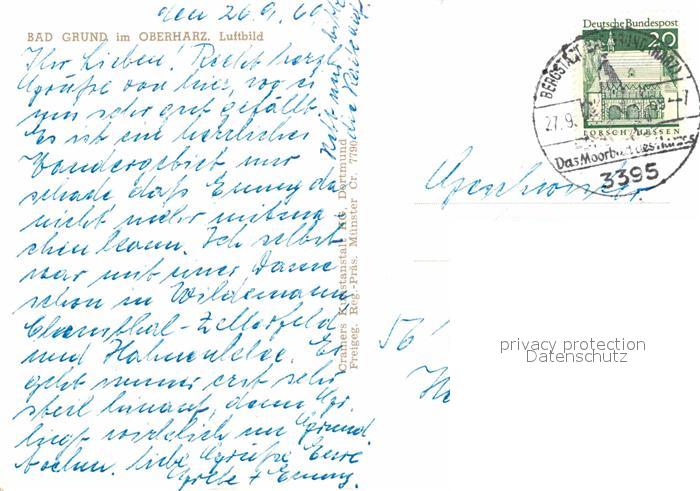 den 26.9.69
BAD GRUND im OBERHARZ. Luftbild
Ihr Lieben! Recht herzl.
Grüße von hier, wo es
uns sehr gut gefällt.
Es ist ein herrliches
Wandergebiet nur
schade daß Emmy da
nicht mehr mitma-
chen kann. Ich selbst
war mit einer Dame
schon in Wildemann,
Clausthal-Zellerfeld
und Hahnenklee. Es
geht immer erst sehr
steil hinauf, denn Gr.
liegt wirklich im Grund
liebe Grüße Eure
Grete + Emmy.
Cramers Kunstanstalt KG. Dortmund
Freigeg. Reg.-Präs. Münster Cr. 7790
Deutsche Bundespost
20
LORSCH/HESSEN
BERGSTADT BAD GRUND (HARZ) 1
27.9.
Das Moorbad des Harzes
3395
Geschwister
56
privacy protection
Datenschutz